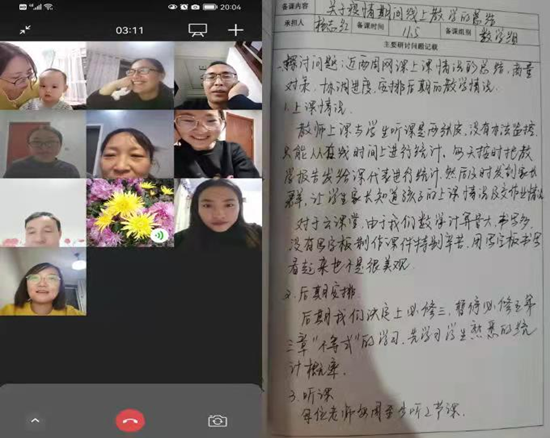 20:04
03:11
备课内容
关于疫情期间线上教学的总结
承担人
备课时间
11.5
备课组别
数学组
主要研讨问题记载
探讨问题:近两周网课上课情况的总结,商量
对策,协调进度,安排后期的教学情况。
1.上课情况。
教师上课与学生听课是两张皮,没有办法监控,
只能从在线时间上进行统计,每天按时把教
学报告发给课代表进行统计,然后及时发到家长
群,让学生家长知道孩子的上课情况及作业情况
对于云课堂,由于我们数学计算量大,书写多,
没有写字板制作课件特别辛苦,用写字板书写
看起来也不是很美观.
2.后期安排
后期我们决定上必修三,暂停必修五第
三章"不等式"的学习,先学习学生熟悉的统
计概率.
3.听课
每位老师每周至少听2节课.